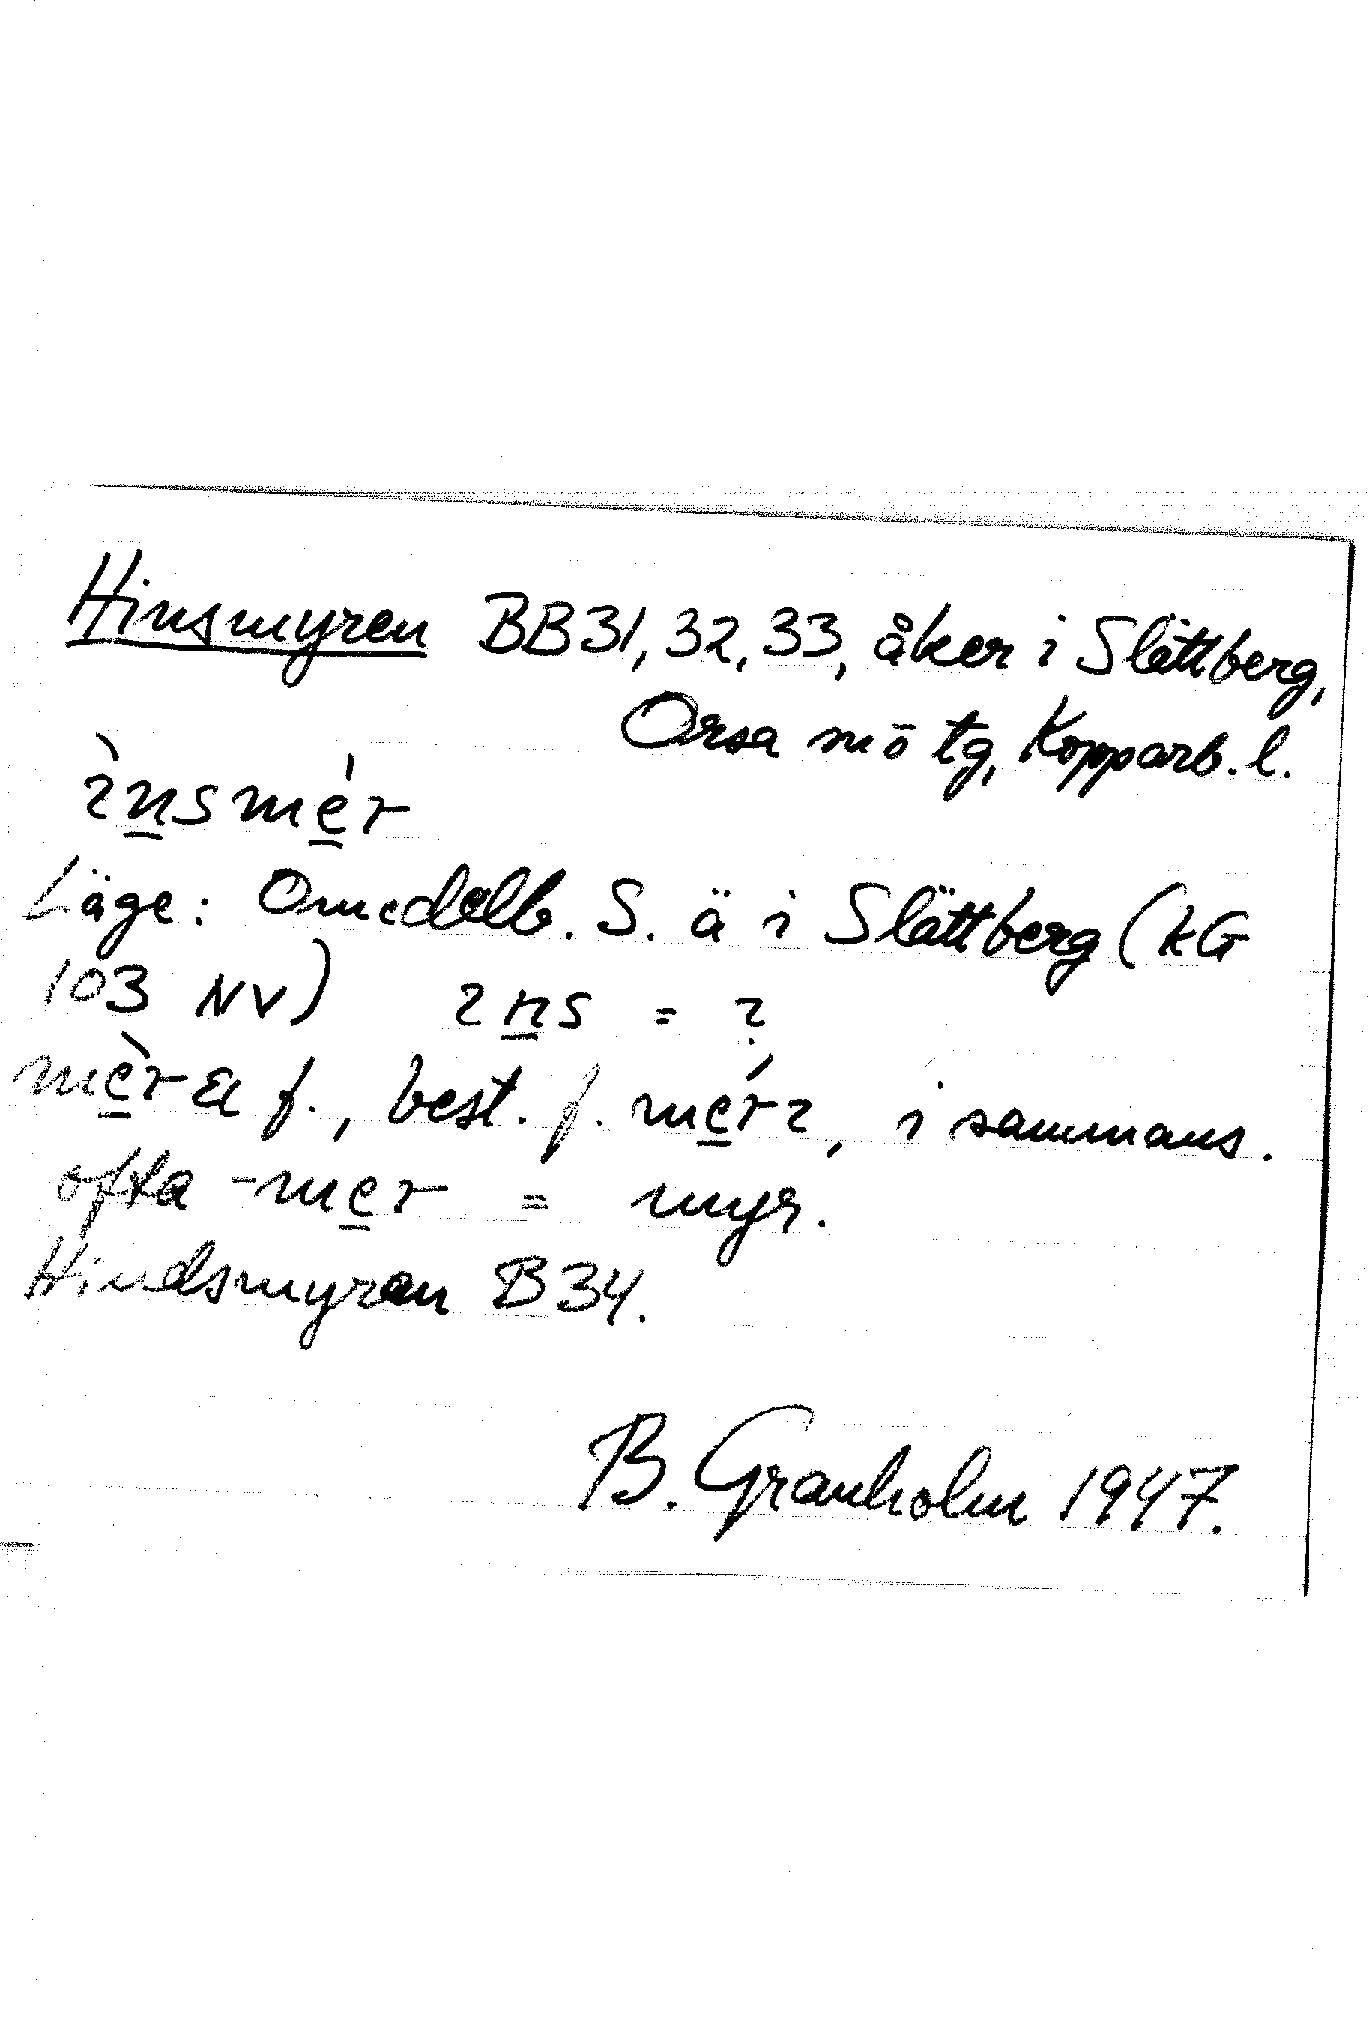 Hinsmyren BB31, 32, 33, åker i Slättberg,
Orsa sn ö tg, Kopparb. l.
ı̀n̲sme̲̍r
Läge: Omedelb. S. ä i Slättberg (kG
103 NV) ın̲s = ?
mè̲ra f., best. f. mé̲rı, i sammans.
ofta -me̲r = myr.
Hindsmyran B34.
B. Granholm 1947.